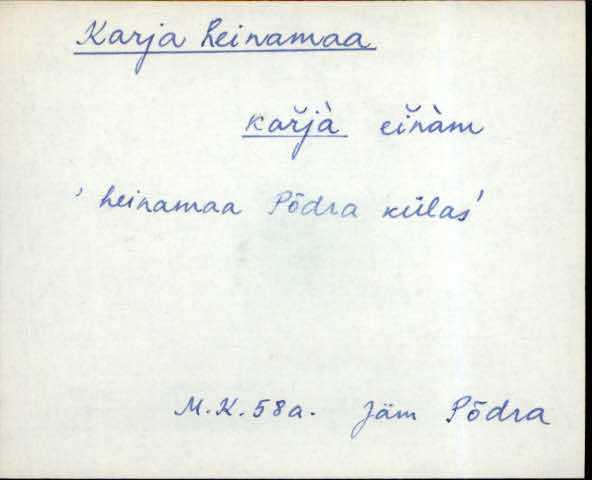 Karja heinamaa
kar̆jà eĭnàm
' heinamaa Põdra külas'
M.K.58a. Jäm Põdra